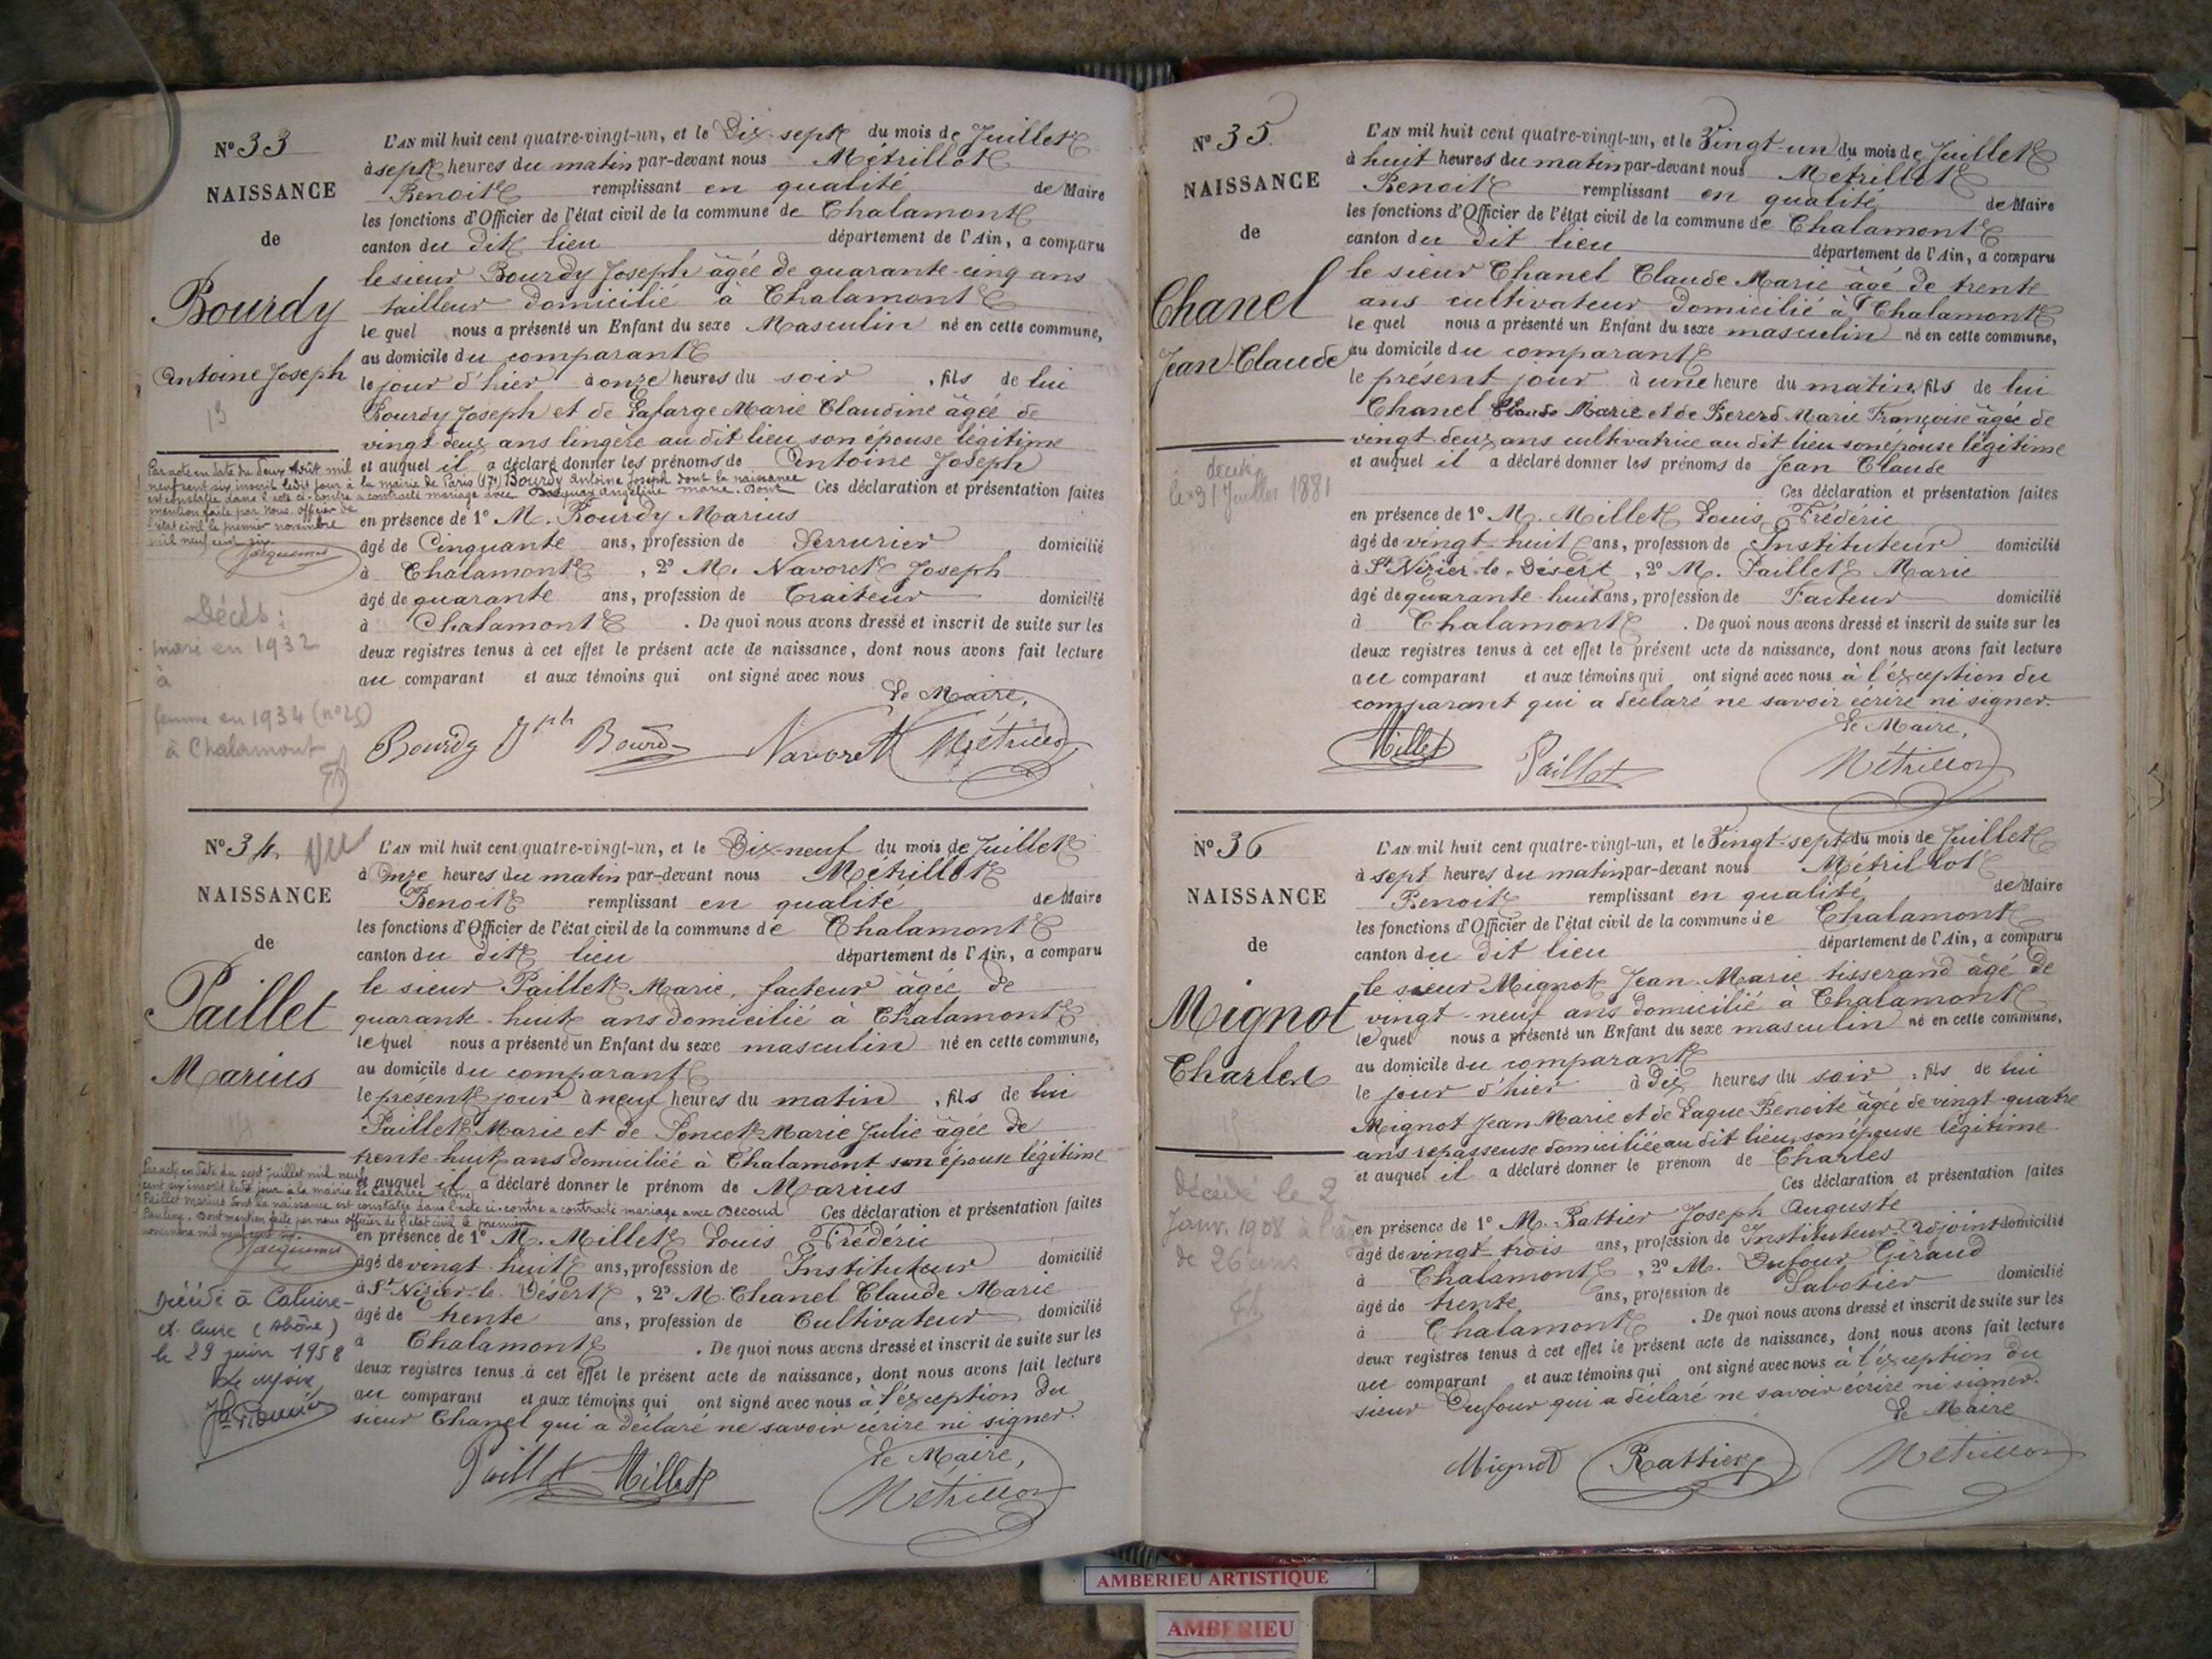 N° 33
NAISSANCE
de
Bourdy
Antoine Joseph
13
Par acte en date du deux Août mil
neuf cent six inscrit ledit jour à la mairie de Paris (17e) Bourdy Antoine Joseph dont la naissance
est constatée dans l'acte ci-contre a contracté mariage avec Angéline Marie. Dont
mention faite par nous, officier de
l'état civil le premier novembre
mil neuf cent six.
Jacquemes
Décès :
mari en 1932
à
femme en 1934 (n°25)
à Chalamont
L'AN mil huit cent quatre-vingt-un, et le Dix-sept du mois de Juillet
à sept heures du matin par-devant nous Métrillot
Benoit remplissant en qualité de Maire
les fonctions d'Officier de l'état civil de la commune de Chalamont
canton du dit lieu département de l'Ain, a comparu
le sieur Bourdy Joseph âgée de quarante-cinq ans
tailleur domicilié à Chalamont
le quel nous a présenté un Enfant du sexe Masculin né en cette commune,
au domicile du comparant
le jour d'hier à onze heures du soir, fils de lui
Bourdy Joseph et de Lafarge Marie Claudine âgée de
vingt-deux ans lingère au dit lieu son épouse légitime
et auquel il a déclaré donner les prénoms de Antoine Joseph
Ces déclaration et présentation faites
en présence de 1° M. Bourdy Marius
âgé de Cinquante ans, profession de Serrurier domicilié
à Chalamont, 2° M. Navoret Joseph
âgé de quarante ans, profession de Traiteur domicilié
à Chalamont. De quoi nous avons dressé et inscrit de suite sur les
deux registres tenus à cet effet le présent acte de naissance, dont nous avons fait lecture
au comparant et aux témoins qui ont signé avec nous
Le Maire,
Bourdy Jph Bourdy Navoret Métrillot
N° 34 Vu
NAISSANCE
de
Paillet
Marius
Par acte en date du sept Juillet mil neuf
cent six inscrit ledit jour à la mairie de Caluire Rhône
Paillet Marius dont la naissance est constatée dans l'acte ci-contre a contracté mariage avec Decoud
Pauline. Dont mention faite par nous officier de l'état civil le premier
novembre mil neuf cent six.
Jacquemes
Décédé à Caluire-
et Cuire (Rhône)
le 29 juin 1958
L'AN mil huit cent quatre-vingt-un, et le Dix-neuf du mois de Juillet
à Onze heures du matin par-devant nous Métrillot
Benoit remplissant en qualité de Maire
les fonctions d'Officier de l'état civil de la commune de Chalamont
canton du dit lieu département de l'Ain, a comparu
le sieur Paillet Marie, facteur âgée de
quarante-huit ans domicilié à Chalamont
le quel nous a présenté un Enfant du sexe masculin né en cette commune,
au domicile du comparant
le présent jour à neuf heures du matin, fils de lui
Paillet Marie et de Poncet Marie Julie âgée de
trente huit ans domiciliée à Chalamont son épouse légitime
et auquel il a déclaré donner le prénom de Marius
Ces déclaration et présentation faites
en présence de 1° M. Millet Louis Frédéric
âgé de vingt-huit ans, profession de Instituteur domicilié
à St Nizier-le-Désert, 2° M. Chanel Claude Marie
âgé de trente ans, profession de Cultivateur domicilié
à Chalamont. De quoi nous avons dressé et inscrit de suite sur les
deux registres tenus à cet effet le présent acte de naissance, dont nous avons fait lecture
au comparant et aux témoins qui ont signé avec nous à l'éxception du
sieur Chanel qui a déclaré ne savoir écrire ni signer.
Le Maire,
Paillet Millet Métrillot
N° 35.
NAISSANCE
de
Chanel
Jean-Claude
décédé
le 31 Juillet 1881
L'AN mil huit cent quatre-vingt-un, et le Vingt-un du mois de Juillet
à huit heures du matin par-devant nous Métrillot
Benoit remplissant en qualité de Maire
les fonctions d'Officier de l'état civil de la commune de Chalamont
canton du dit lieu département de l'Ain, a comparu
le sieur Chanel Claude Marie âgé de trente
ans cultivateur domicilié à Chalamont
le quel nous a présenté un Enfant du sexe masculin né en cette commune,
au domicile du comparant
le présent jour à une heure du matin, fils de lui
Chanel Claude Marie et de Bererd Marie Françoise âgée de
vingt-deux ans cultivatrice au dit lieu son épouse légitime
et auquel il a déclaré donner les prénoms de Jean Claude
Ces déclaration et présentation faites
en présence de 1° M. Millet Louis Frédéric
âgé de vingt-huit ans, profession de Instituteur domicilié
à St Nizier-le-Désert, 2° M. Paillet Marie
âgé de quarante-huit ans, profession de Facteur domicilié
à Chalamont. De quoi nous avons dressé et inscrit de suite sur les
deux registres tenus à cet effet le présent acte de naissance, dont nous avons fait lecture
au comparant et aux témoins qui ont signé avec nous à l'éxception du
comparant qui a déclaré ne savoir écrire ni signer.
Le Maire,
Millet Paillet Métrillot
N° 36
NAISSANCE
de
Mignot
Charles
Décédé le 2
Janv. 1908 à l'âge
de 26 ans
L'AN mil huit cent quatre-vingt-un, et le Vingt-sept du mois de Juillet
à sept heures du matin par-devant nous Métrillot
Benoit remplissant en qualité de Maire
les fonctions d'Officier de l'état civil de la commune de Chalamont
canton du dit lieu département de l'Ain, a comparu
le sieur Mignot Jean-Marie tisserand âgé de
vingt-neuf ans domicilié à Chalamont
le quel nous a présenté un Enfant du sexe masculin né en cette commune,
au domicile du comparant
le jour d'hier à Dix heures du soir, fils de lui
Mignot Jean Marie et de Laque Benoite âgée de vingt-quatre
ans repasseuse domiciliée au dit lieu, son épouse légitime
et auquel il a déclaré donner le prénom de Charles
Ces déclaration et présentation faites
en présence de 1° M. Rattier Joseph Auguste
âgé de vingt-trois ans, profession de Instituteur-Adjoint domicilié
à Chalamont, 2° M. Dufour Giraud
âgé de trente ans, profession de Sabotier domicilié
à Chalamont. De quoi nous avons dressé et inscrit de suite sur les
deux registres tenus à cet effet le présent acte de naissance, dont nous avons fait lecture
au comparant et aux témoins qui ont signé avec nous à l'éxception du
sieur Dufour qui a déclaré ne savoir écrire ni signer.
Le Maire
Mignot Rattier Métrillot
AMBERIEU ARTISTIQUE
AMBERIEU